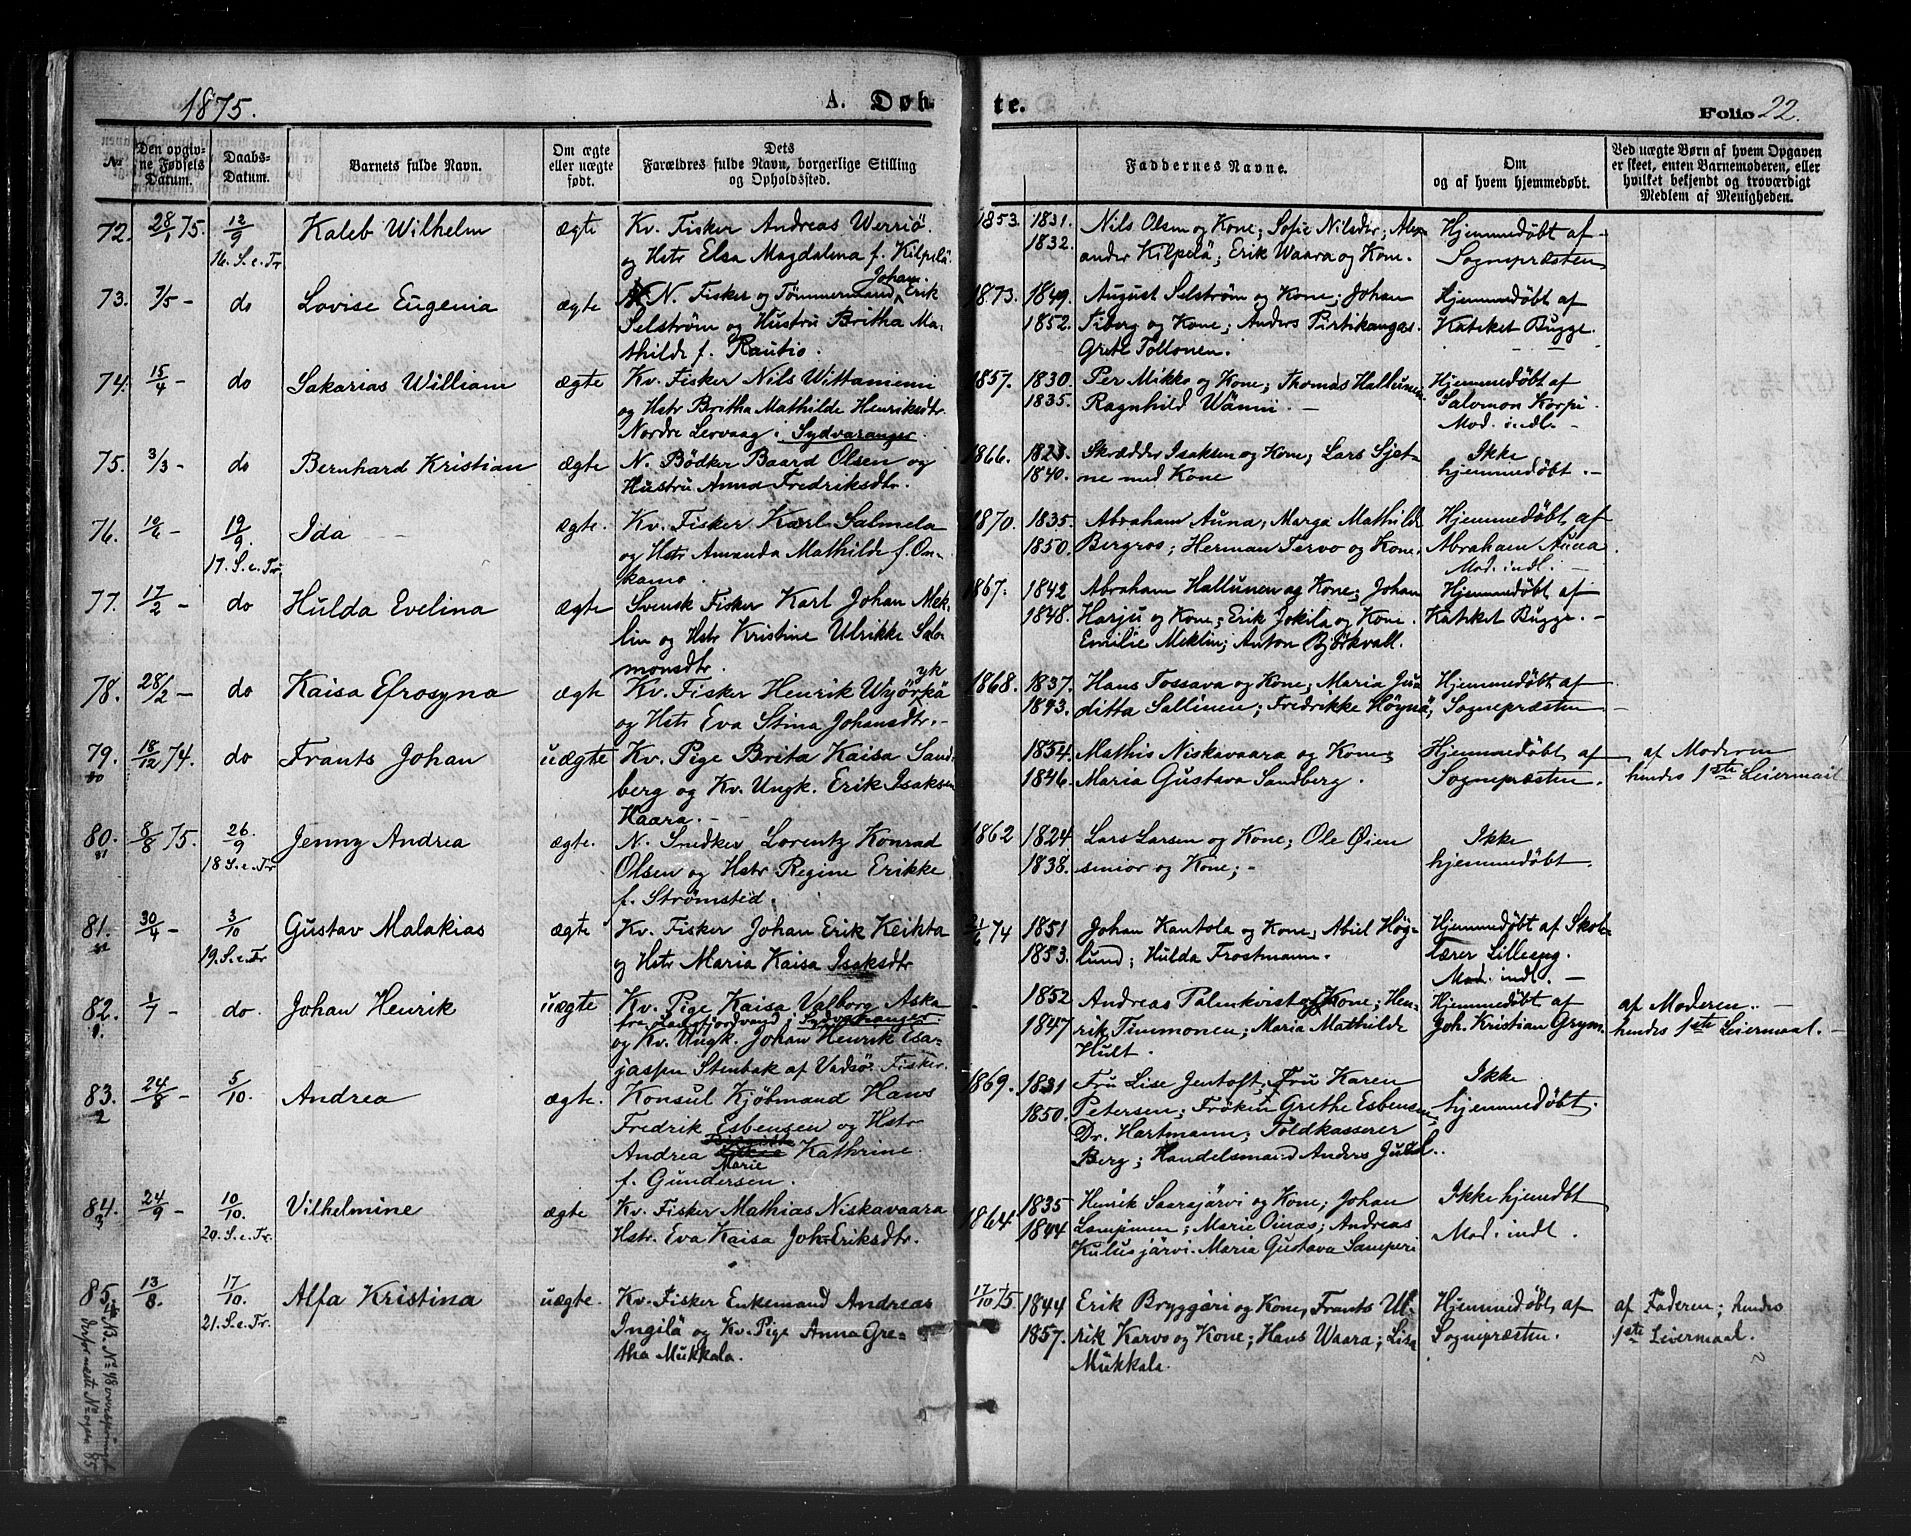 1875.
A. Døb
te.
Folio 22.
No
Den opgiv-
ne Fødsels
Datum.
Daabs-
Datum.
Barnets fulde Navn.
Om ægte
eller uægte
født.
Dets
Forældres fulde Navn, borgerlige Stilling
og Opholdssted.
Faddernes Navne.
Om
og af hvem hjemmedøbt.
Ved uægte Børn af hvem Opgaven
er skeet, enten Barnemoderen, eller
hvilket bekjendt og troværdigt
Medlem af Menigheden.
72. 28/1 75. 12/9 16. S. e. Tr. Kaleb Wilhelm ægte
Kv. Fisker Andreas Werriö
og Hstr Elsa Magdalena f. Kilpelä
1853. 1831. 1832.
Nils Olsen og Kone; Sofie Nilsdtr; Alex
ander Kilpelä; Erik Waara og Kone.
Hjemmedøbt af
Sognepræsten
73. 7/5 - do Lovise Eugenia ægte
N. Fisker og Tømmermand Johan Erik
Selström og Hustru Britha Ma-
thilde f. Rautio.
1873. 1849. 1852.
August Selström og Kone; Johan
Fiborg og Kone; Anders Pirtikangas
Grete Tollonen.
Hjemmedøbt af
Kateket Bugge.
74. 15/4 - do Sakarias William ægte
Kv. Fisker Nils Wittaniemi
og Hstr Britha Mathilde Henriksdtr.
Nordre Lervaag i Sydvaranger.
1857. 1830. 1835.
Per Mikko og Kone; Thomas Hallunen
Ragnhild Wännii. -
Hjemmedøbt af
Salomon Korpi.
Mod. indl. -
75. 3/3 - do Bernhard Kristian ægte
N. Bödker Baard Olsen og
Hustru Anna Fredriksdtr.
1866. 1823. 1840.
Skrædder Isaksen og Kone; Lars Sjet-
ne med Kone
Ikke
hjemmedøbt. -
76. 10/6 - 19/9. 17. S. e. Tr. Ida ægte.
Kv. Fisker Karl Salmela
og Hstr Amanda Mathilde f. On-
kamo.
1870. 1835. 1850.
Abraham Auna; Marga Mathilde
Bergros; Herman Tervo og Kone.
Hjemmedøbt af
Abraham Auna
Mod. indl. -
77. 17/2 - do Hulda Evelina ægte
Svensk Fisker Karl Johan Mek-
lin og Hstr Kristine Ulrikke Salo-
monsdtr.
1867. 1842 1848.
Abraham Hallunen og Kone; Johan
Harju og Kone; Erik Jokila og Kone.
Emilie Meklin; Anton Björkvall.
Hjemmedøbt af
Kateket Bugge. -
78. 28/2 - do Kaisa Efrosyna ægte
Kv. Fisker Henrik Wyörkä
yk
og Hstr Eva Stina Johansdtr. -
1868. 1837. 1843.
Hans Tossava og Kone; Maria Ju-
ditta Sallinen; Fredrikke Höynä;
Hjemmedøbt af
Sognepræsten -
79. 80 18/12 74. do Frants Johan uægte
Kv. Pige Brita Kaisa Sand-
berg og Kv. Ungk. Erik Isaksen
Haara. -
1854. 1846.
Mathis Niskavaara og Kone;
Maria Gustava Sandberg.
Hjemmedøbt af
Sognepræsten.
af Moderen
hendes 1ste Leiermaal
80. 81 8/8 75. 26/9 18 S. e. Tr Jenny Andrea ægte.
N. Snedker Lorentz Konrad
Olsen og Hstr Regine Erikke
f. Strömsted.
1862 1824 1838.
Lars Larsen og Kone; Ole Øien
senior og Kone; -
Ikke
hjemmedøbt.
81. 30/4 - 3/10 19. S. e. Tr. Gustav Malakias ægte
Kv. Fisker Johan Erik Keikka
og Hstr Maria Kaisa Isaksdtr
74 1851 1853.
Johan Kantola og Kone; Abiel Hög-
lund; Hulda Frostmann.
Hjemmedøbt af Skol-
lærer Lillespg.
Mod. indl. -
82. 1/7 - do. Johan Henrik uægte
Kv. Pige Kaisa Valborg Aska
i Sydvaranger
og Kv. Ungk. Johan Henrik Esa-
jassen Stenbak af Vadsö. Fisker.
- 1852 1847
Andreas Palmkvist og Kone; Hen-
rik Timmonen; Maria Mathilde
Hult.
Hjemmedøbt af
Joh. Kristian Grym.
af Moderen. -
hendes 1ste Leiermaal. -
83. 2 24/8 - 5/10. Andrea ægte.
Konsul Kjöbmand Hans
Fredrik Esbensen og Hstr
Andrea Marie Kathrine
f. Gundersen.
1869. 1831 1850.
Fru Lise Jentoft; Fru Karen
Petersen; Fröken Grethe Esbensen
Dr. Hartmann; Toldkasserer
Berg; Handelsmand Anders Juhl.
Ikke
hjemmedøbt.
84. 3 24/9 - 10/10. 20. S. e. Tr. Vilhelmine ægte
Kv. Fisker Mathias Niskavaara
Hstr. Eva Kaisa Joh Eriksdtr.
1864 1835 1844
Henrik Saarajärvi og Kone; Johan
Lampinen; Marie Oinas; Andreas
Kulusjärvi. Maria Gustava Samperi
Ikke hjemdøbt
Mod. indl.
85. 13/8. 17/10. 21. S. e. Tr. Alfa Kristina uægte.
Kv. Fisker Enkemand Andreas
Ingilä og Kv. Pige Anna Gre-
tha Mukkala.
17/10 75 1844 1857.
Erik Bryggäri og Kone; Frants Ul-
rik Karvo og Kone; Hans Waara; Lisa
Mukkala.
Hjemmedøbt af
Sognepræsten.
af Faderen; hendes
1ste Leiermaal.
N.B. No 48 oversprunget
derfor næste No ogsaa 85